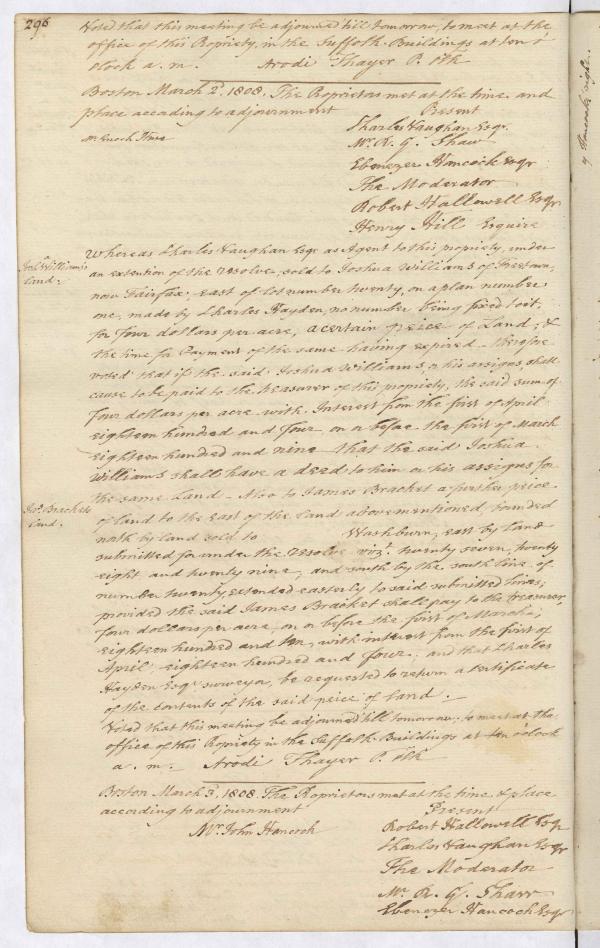 296
Voted that this meeting be adjourned till tomorrow, to meet at the
office of this Propriety, in the Suffolk Buildings at ten o'
clock a.m. Arodi Thayer P. Clk
Boston March 2d. 1808. The Proprietors met at the time and
place according to adjournment
Present
Mr Enoch
Charles Vaughan Esqr.
Mr. R. G. Shaw
Ebenezer Hancock Esqr
The Moderator
Robert Hallowell Esqr
Henry Hill Esquire
Josha. Williams's
land.
Whereas Charles Vaughan Esqr as Agent to this propriety, under
an extention of the resolve, sold to Joshua Williams of Freetown,
now Fairfax, east of lot number twenty, on a plan number
one, made by Charles Hayden, no number being fixed to it,
for four dollars per acre, a certain peice of Land, &
the time for Payment of the same having expired - therefore
voted that if the said Joshua Williams, or his assigns, shall
cause to be paid to the treasurer of this propriety, the said sum of
four dollars per acre with Interest from the first of April
eighteen hundred and four, on or before the first of March
eighteen hundred and nine that the said Joshua
Williams shall have a deed to him or his assigns for
the same Land - Also to James Bracket a further peice
Jas. Brackets
land.
of land to the east of the land abovementioned, bounded
north by land sold to Washburn, east by land
submitted for under the resolve vizt. twenty seven, twenty
eight and twenty nine, and south by the south line of
number twenty extended easterly to said submitted lines;
provided the said James Bracket shall pay to the treasurer,
four dollars per acre, on or before the first of March,
eighteen hundred and ten, with interest from the first of
April eighteen hundred and four; and that Charles
Hayden Esqr. surveyor, be requested to return a certificate
of the contents of the said peice of land.
Voted that this meeting be adjourned till tomorrow, to meet at the
office of this Propriety in the Suffolk Buildings at ten o'clock
a.m. Arodi Thayer P. Clk
Boston March 3d. 1808. The Proprietors met at the time & place
according to adjournment
Present
Mr. John Hancock
Robert Hallowell Esqr
Charles Vaughan Esqr
The Moderator
Mr. R. G. Shaw
Ebenezer Hancock Esqr
Hancock's right.